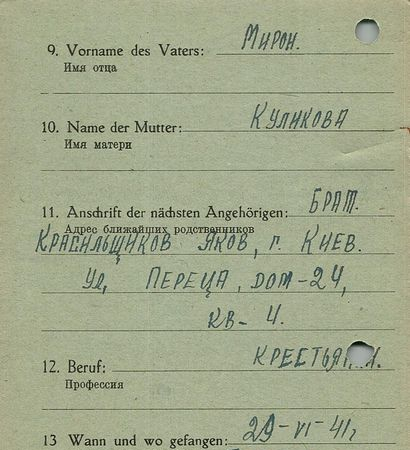 9. Vorname des Vaters: Мирон.
Имя отца
10. Name der Mutter: Куликова
Имя матери
11. Anschrift der nächsten Angehörigen: Брат.
Адрес ближайших родственников
Красильщиков Яков, г. Киев.
Ул, Переца, дом-24,
кв- 4.
12. Beruf:
Профессия
13 Wann und wo gefangen: 29-VI-41г